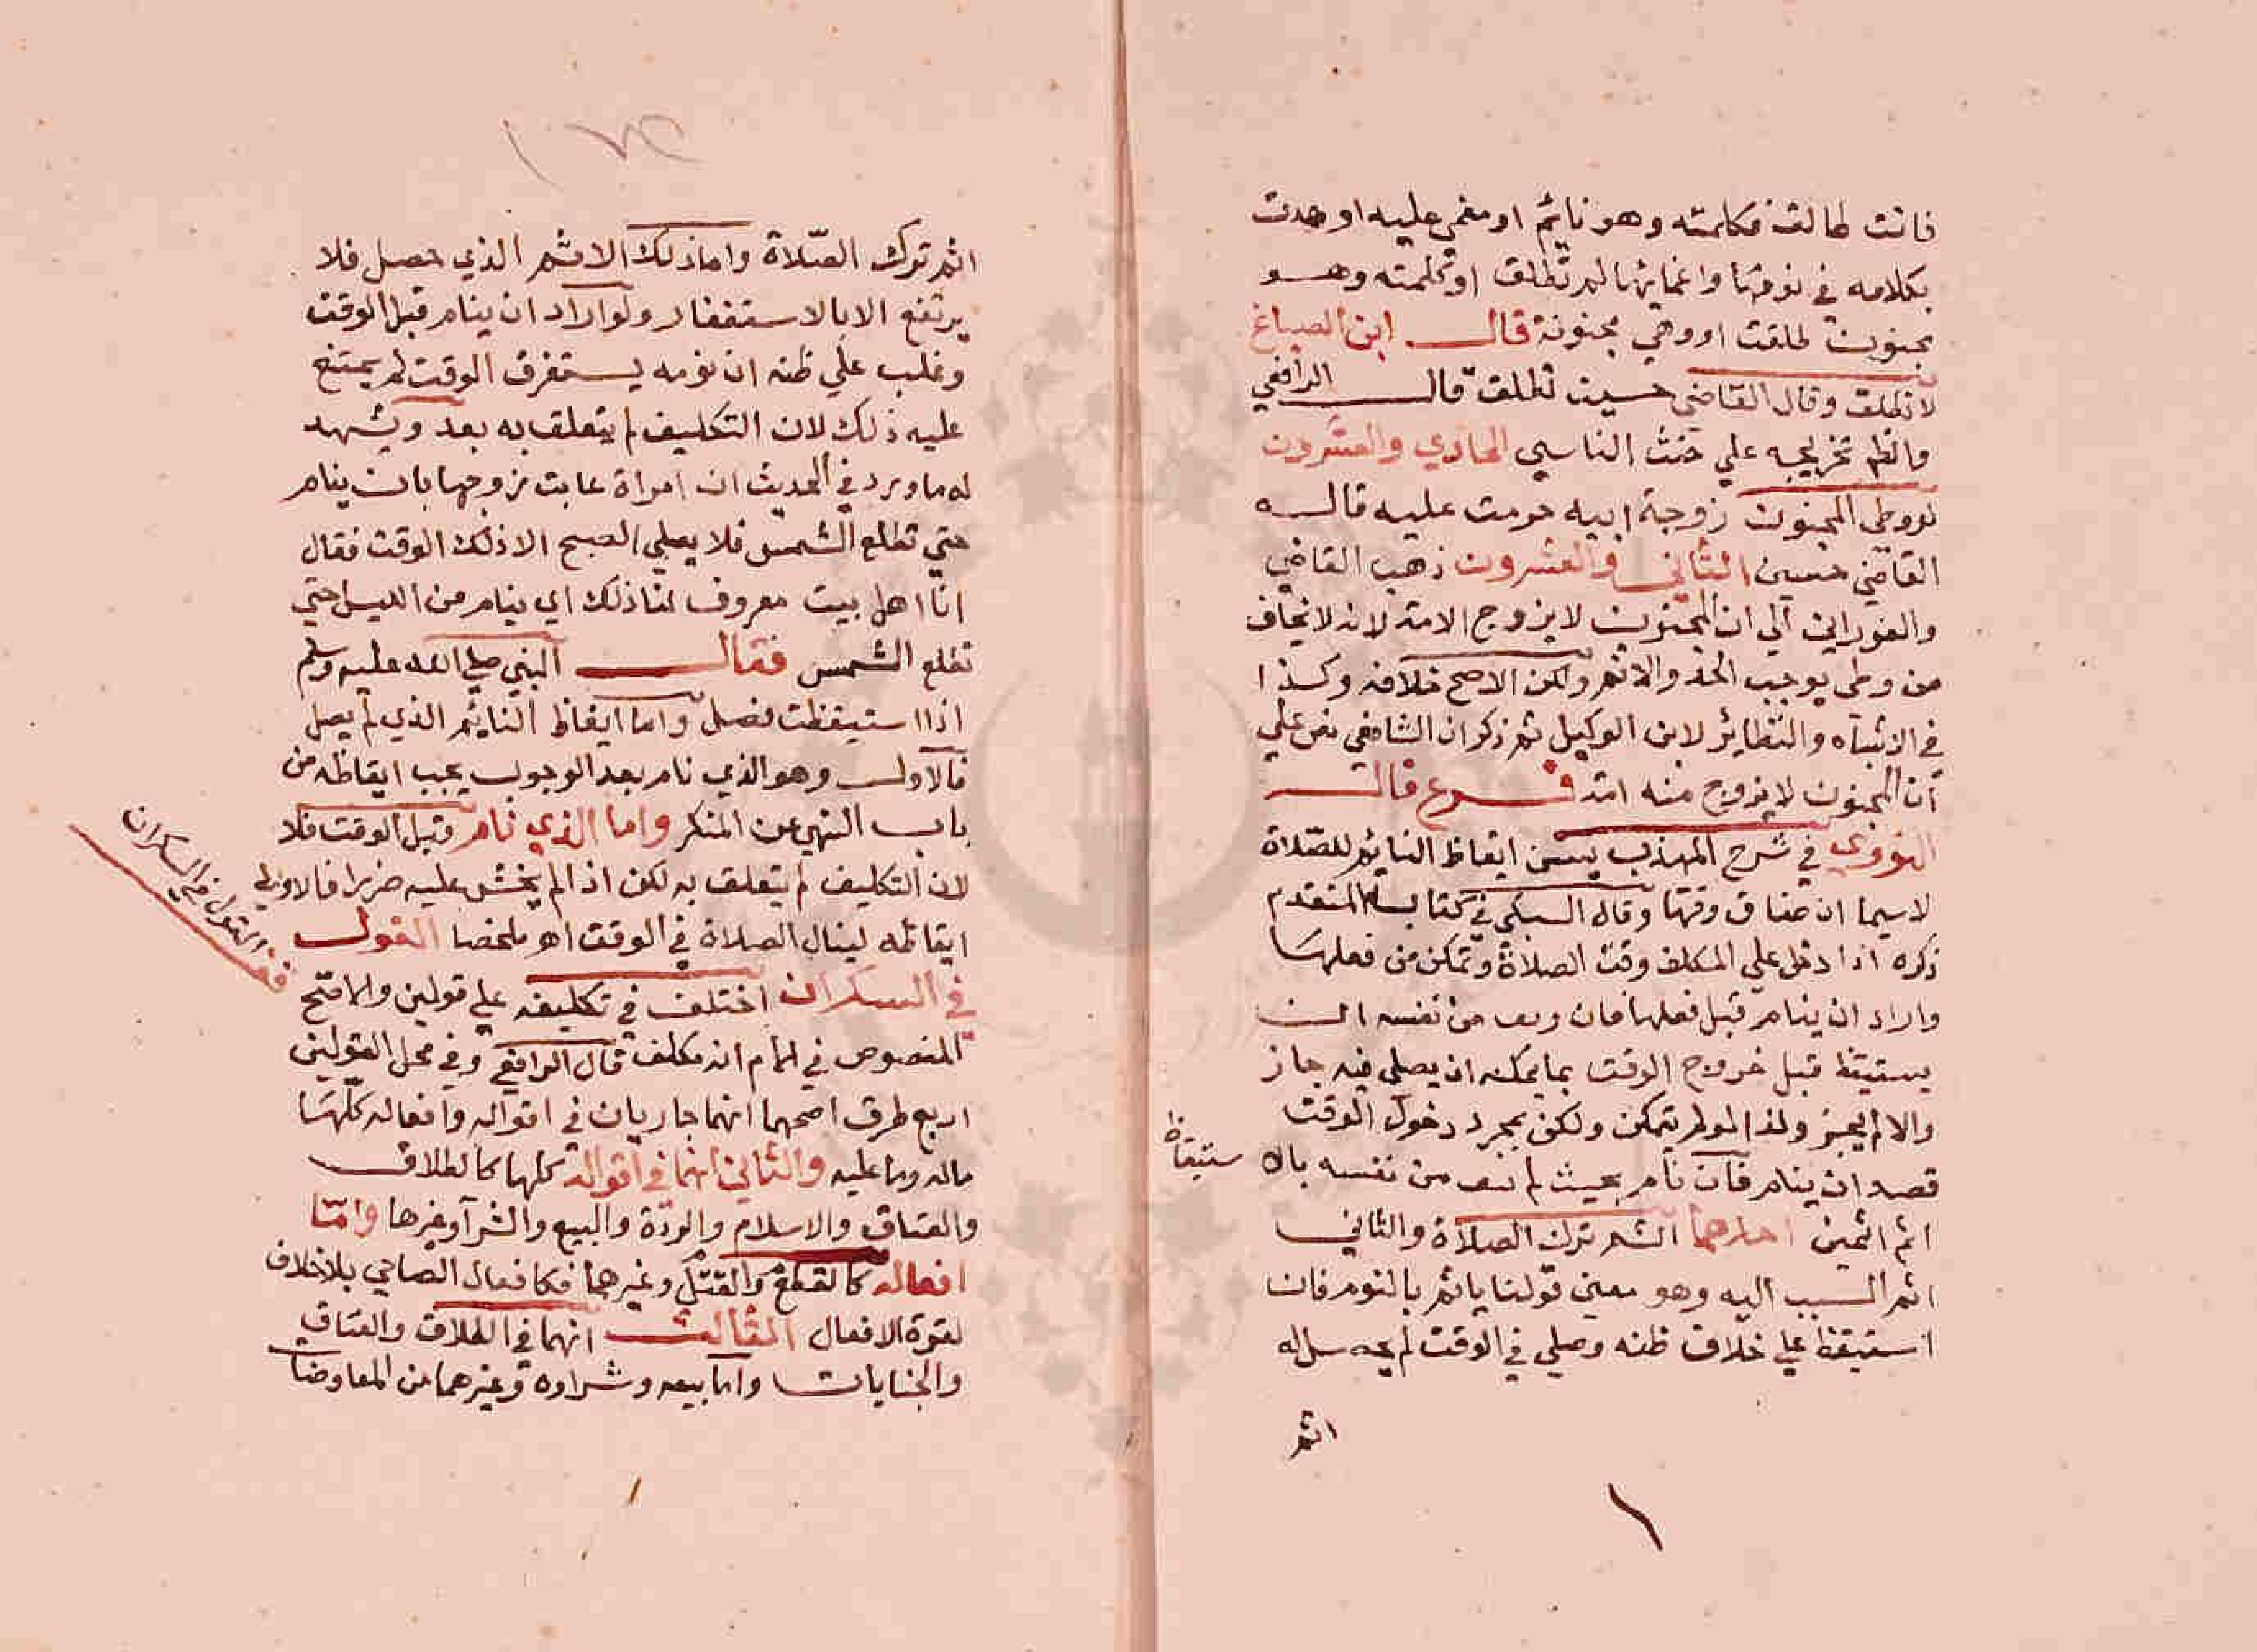 فانت طالق فكلمته وهو نائم او مغمي عليه او هذت
بكلامه في نومها واغمائها لم تطلق او كلمته وهو
مجنون طلقت او وهي مجنونة قال ابن الصباغ
لا تطلق وقال القاضي حسين تطلق قال الرافعي
والظم تخريجه علي حنث الناسي الحادي والعشرون
لو وطي المجنون زوجة ابيه حرمت عليه قاله
القاضي حسين الثاني والعشرون ذهب القاضي
والفوراني الي ان المجنون لا يزوج الامة لانه لا يخاف
من وطي يوجب الحد والاثم ولكن الاصح خلافه وكذا
في الاشباه والنظائر لابن الوكيل ثم ذكر ان الشافعي نص علي
ان المجنون لا يزوج منه امة فرع قال
النووي في شرح المهذب يسن ايقاظ النائم للصلاة
لاسيما ان ضاق وقتها وقال السبكي في كتابه المتقدم
ذكره اذا دخل علي المكلف وقت الصلاة وتمكن من فعلها
واراد ان ينام قبل فعلها فان وثق من نفسه ان
يستيقظ قبل خروج الوقت بما يمكنه ان يصلي فيه جاز
والا لم يجز ولذا لو لم يتمكن ولكن بمجرد دخول الوقت
قصد ان ينام فان نام بحيث لم يثق من نفسه بالا
ستيقاظ
اثم اثمين احدهما اثم ترك الصلاة والثاني
اثم السبب اليه وهو معني قولنا ياثم بالنوم فان
استيقظ علي خلاف ظنه وصلي في الوقت لم يحصل له
اثم
اثم ترك الصلاة واما ذلك الاثم الذي حصل فلا
يرتفع الا بالاستغفار ولو اراد ان ينام قبل الوقت
وغلب علي ظنه ان نومه يستغرق الوقت لم يمتنع
عليه ذلك لان التكليف لم يتعلق به بعد ويشهد
له ما ورد في الحديث ان امراة عابت زوجها بان ينام
حتي تطلع الشمس فلا يصلي الصبح الا ذلك الوقت فقال
انا اهل بيت معروف لنا ذلك اي ينام من الليل حتي
تطلع الشمس فقال النبي صلي الله عليه وسلم
اذا استيقظت فصلي واما ايقاظ النائم الذي لم يصل
فالاول وهو الذي نام بعد الوجوب يجب ايقاظه من
باب النهي عن المنكر واما الذي نام وقبل الوقت فلا
لان التكليف لم يتعلق به لكن اذا لم يخش عليه ضررا فالاولي
ايقاظه لينال الصلاة في الوقت اهـ ملخصا القول
في السكران اختلف في تكليفه علي قولين والاصح
المنصوص في الام انه مكلف قال الرافعي وفي محل القولين
اربع طرق اصحهما انهما جاريان في اقواله وافعاله كلها
ماله وما عليه والثاني انهما في اقواله كلها كالطلاق
والعتاق والاسلام والردة والبيع والشرآ وغيرها واما
افعاله كالقطع والقتل وغيرهما فكافعال الصاحي بلا خلاف
لقوة الافعال الثالث انهما في الطلاق والعتاق
والجنايات واما بيعه وشراوه وغيرهما من المعاوضات
قف القول في السكران